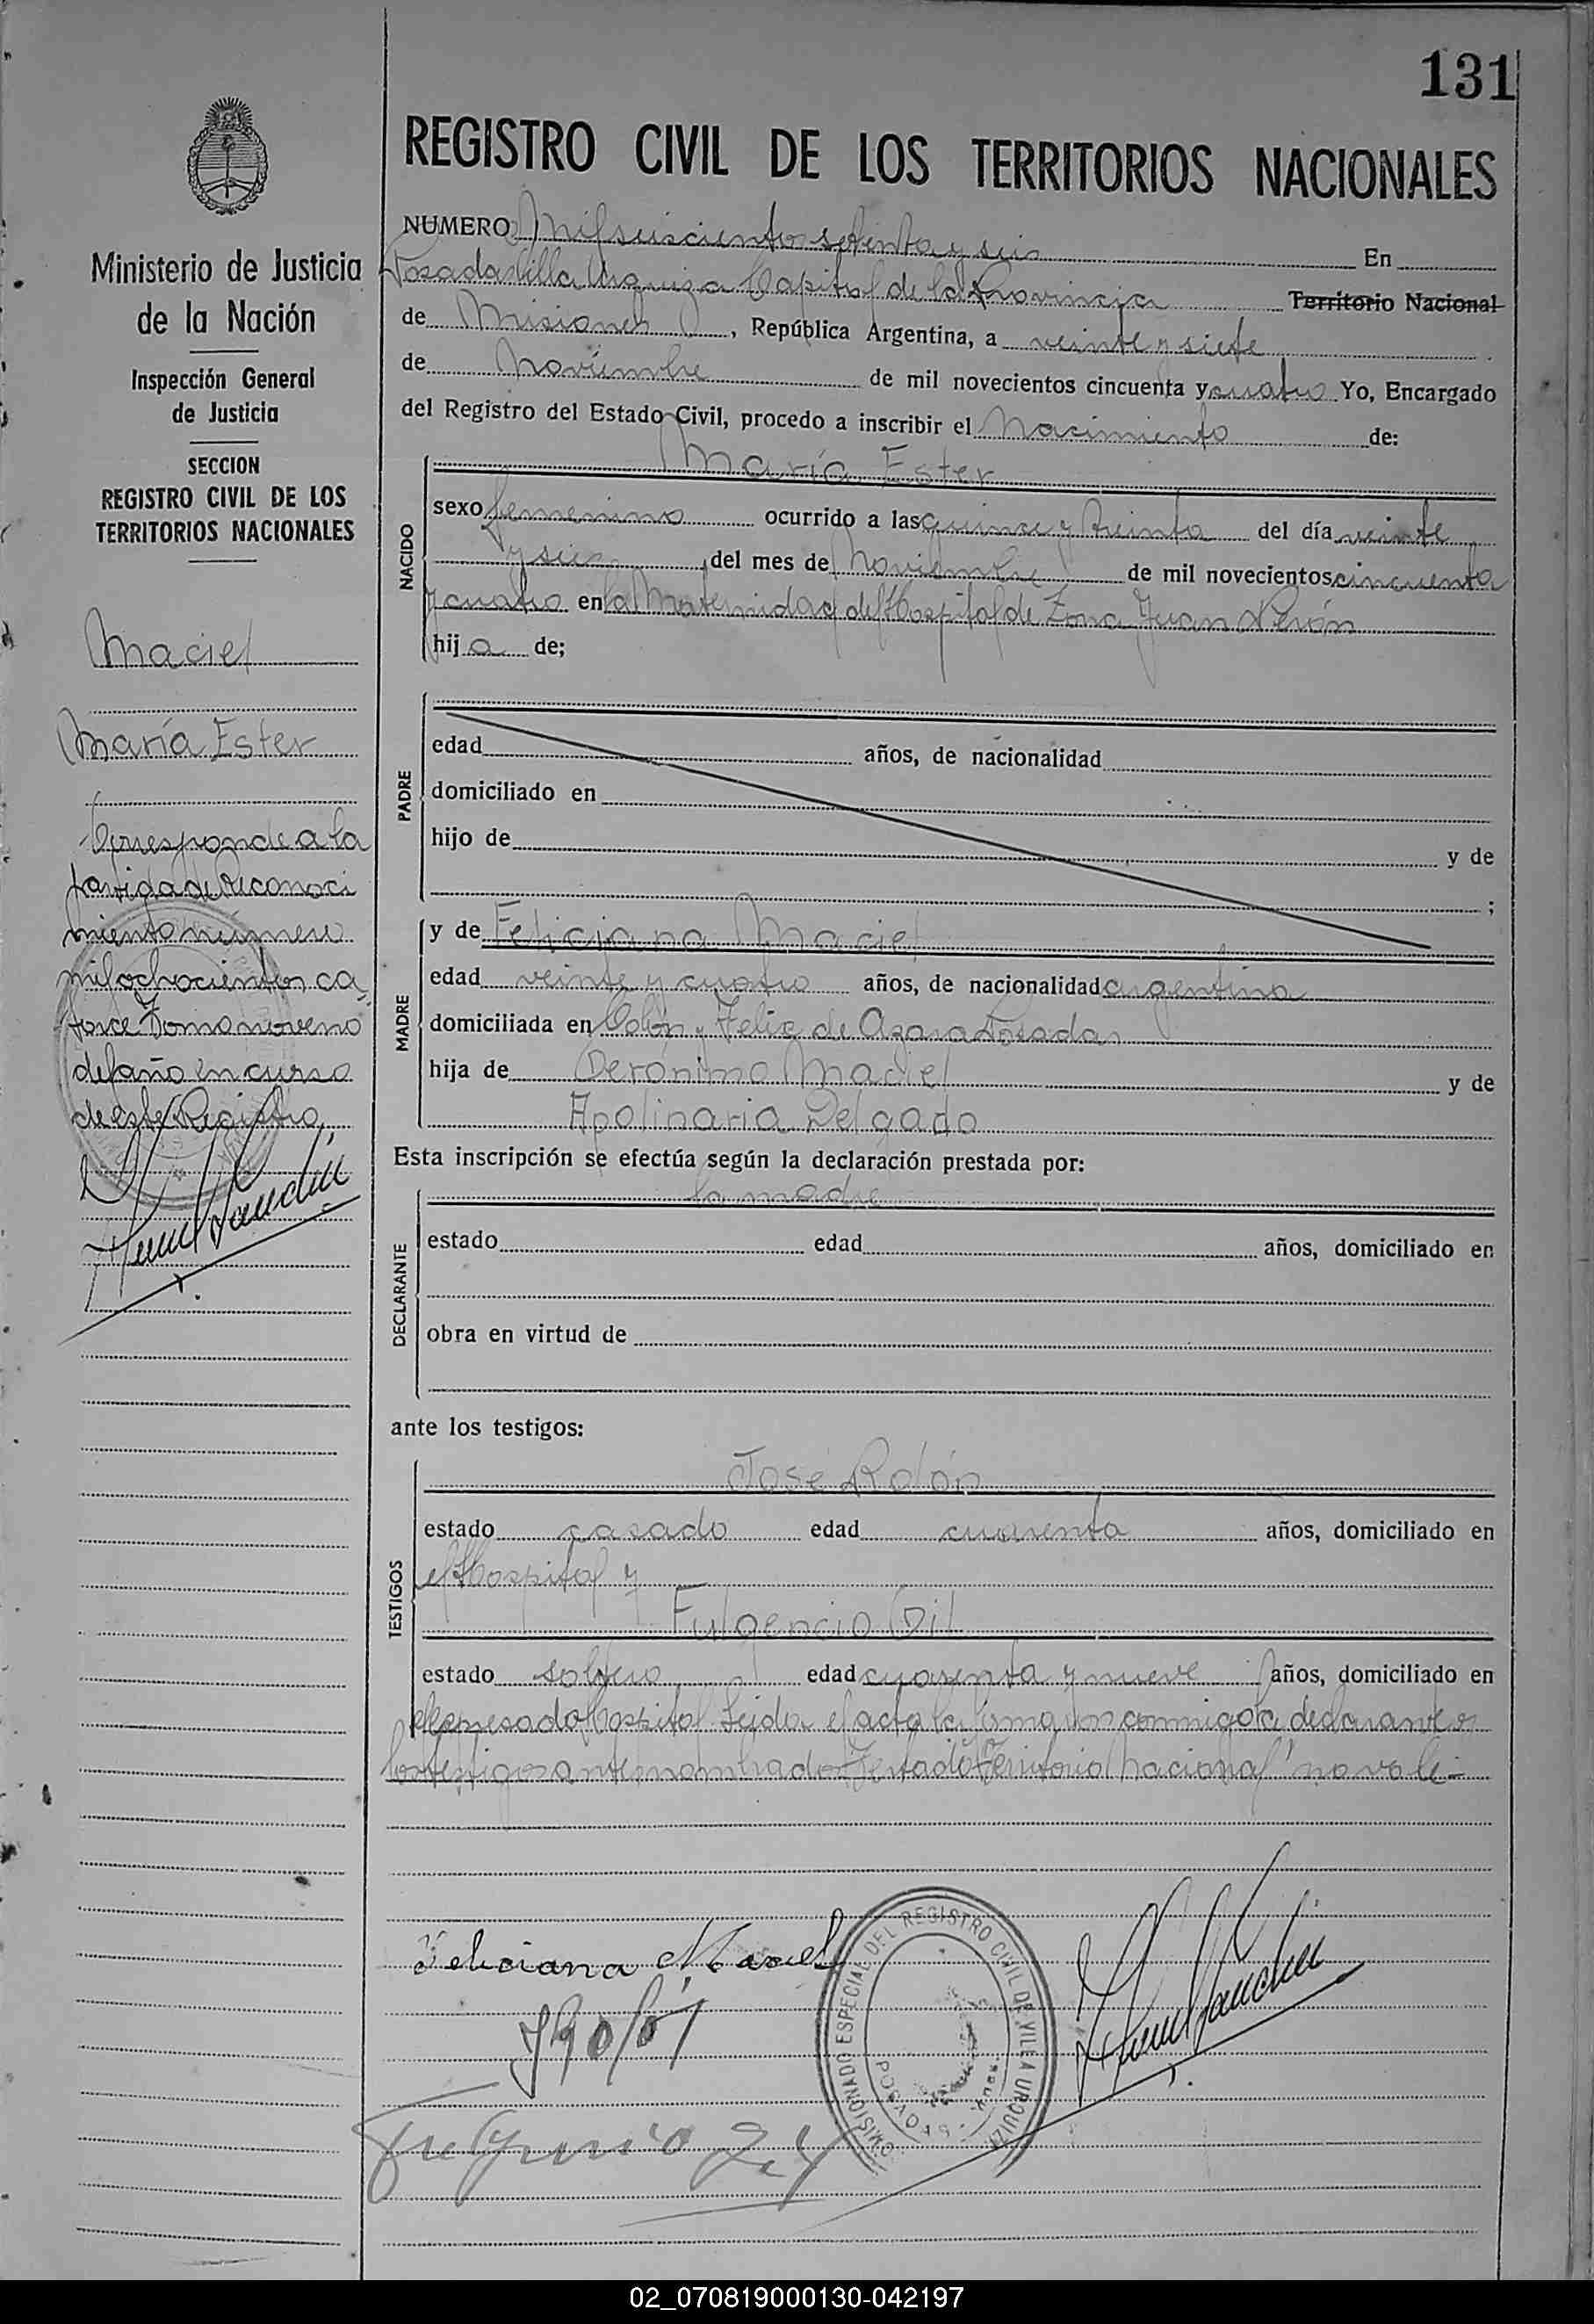 131
REGISTRO CIVIL DE LOS TERRITORIOS NACIONALES
Ministerio de Justicia
de la Nación
Inspección General
de Justicia
SECCION
REGISTRO CIVIL DE LOS
TERRITORIOS NACIONALES
Maciel
María Ester
Corresponde a la
partida de Reconoci
miento número
mil ochocientos ca
torce Tomo noveno
del año en curso
de este Registro
NUMERO Mil seiscientos setenta y seis En
Posadas Villa Urquiza Capital de la Provincia Territorio Nacional
de Misiones, República Argentina, a veinte y siete
de Noviembre de mil novecientos cincuenta y cuatro Yo, Encargado
del Registro del Estado Civil, procedo a inscribir el Nacimiento de:
María Ester
NACIDO
sexo femenino ocurrido a las quince y treinta del día veinte
y seis del mes de Noviembre de mil novecientos cincuenta
y cuatro en la Maternidad del Hospital de Zona Juan Perón
hija de;
PADRE
edad años, de nacionalidad
domiciliado en
hijo de y de
;
MADRE
y de Feliciana Maciel
edad veinte y cuatro años, de nacionalidad argentina
domiciliada en Colón y Felix de Azara Posadas
hija de Gerónimo Maciel y de
Apolinaria Delgado
Esta inscripción se efectúa según la declaración prestada por:
la madre
DECLARANTE
estado edad años, domiciliado en
obra en virtud de
ante los testigos:
TESTIGOS
José Rolón
estado casado edad cuarenta años, domiciliado en
el Hospital y
Fulgencio Gil
estado soltero edad cuarenta y nueve años, domiciliado en
el expresado Hospital. Leida el acta la firmaron conmigo la declarante y
los testigos antes nombrados. Testado "Territorio Nacional" no vale.-
Feliciana Maciel
COMISIONADO ESPECIAL DEL REGISTRO CIVIL DE VILLA URQUIZA
POSADAS
02_070819000130-042197